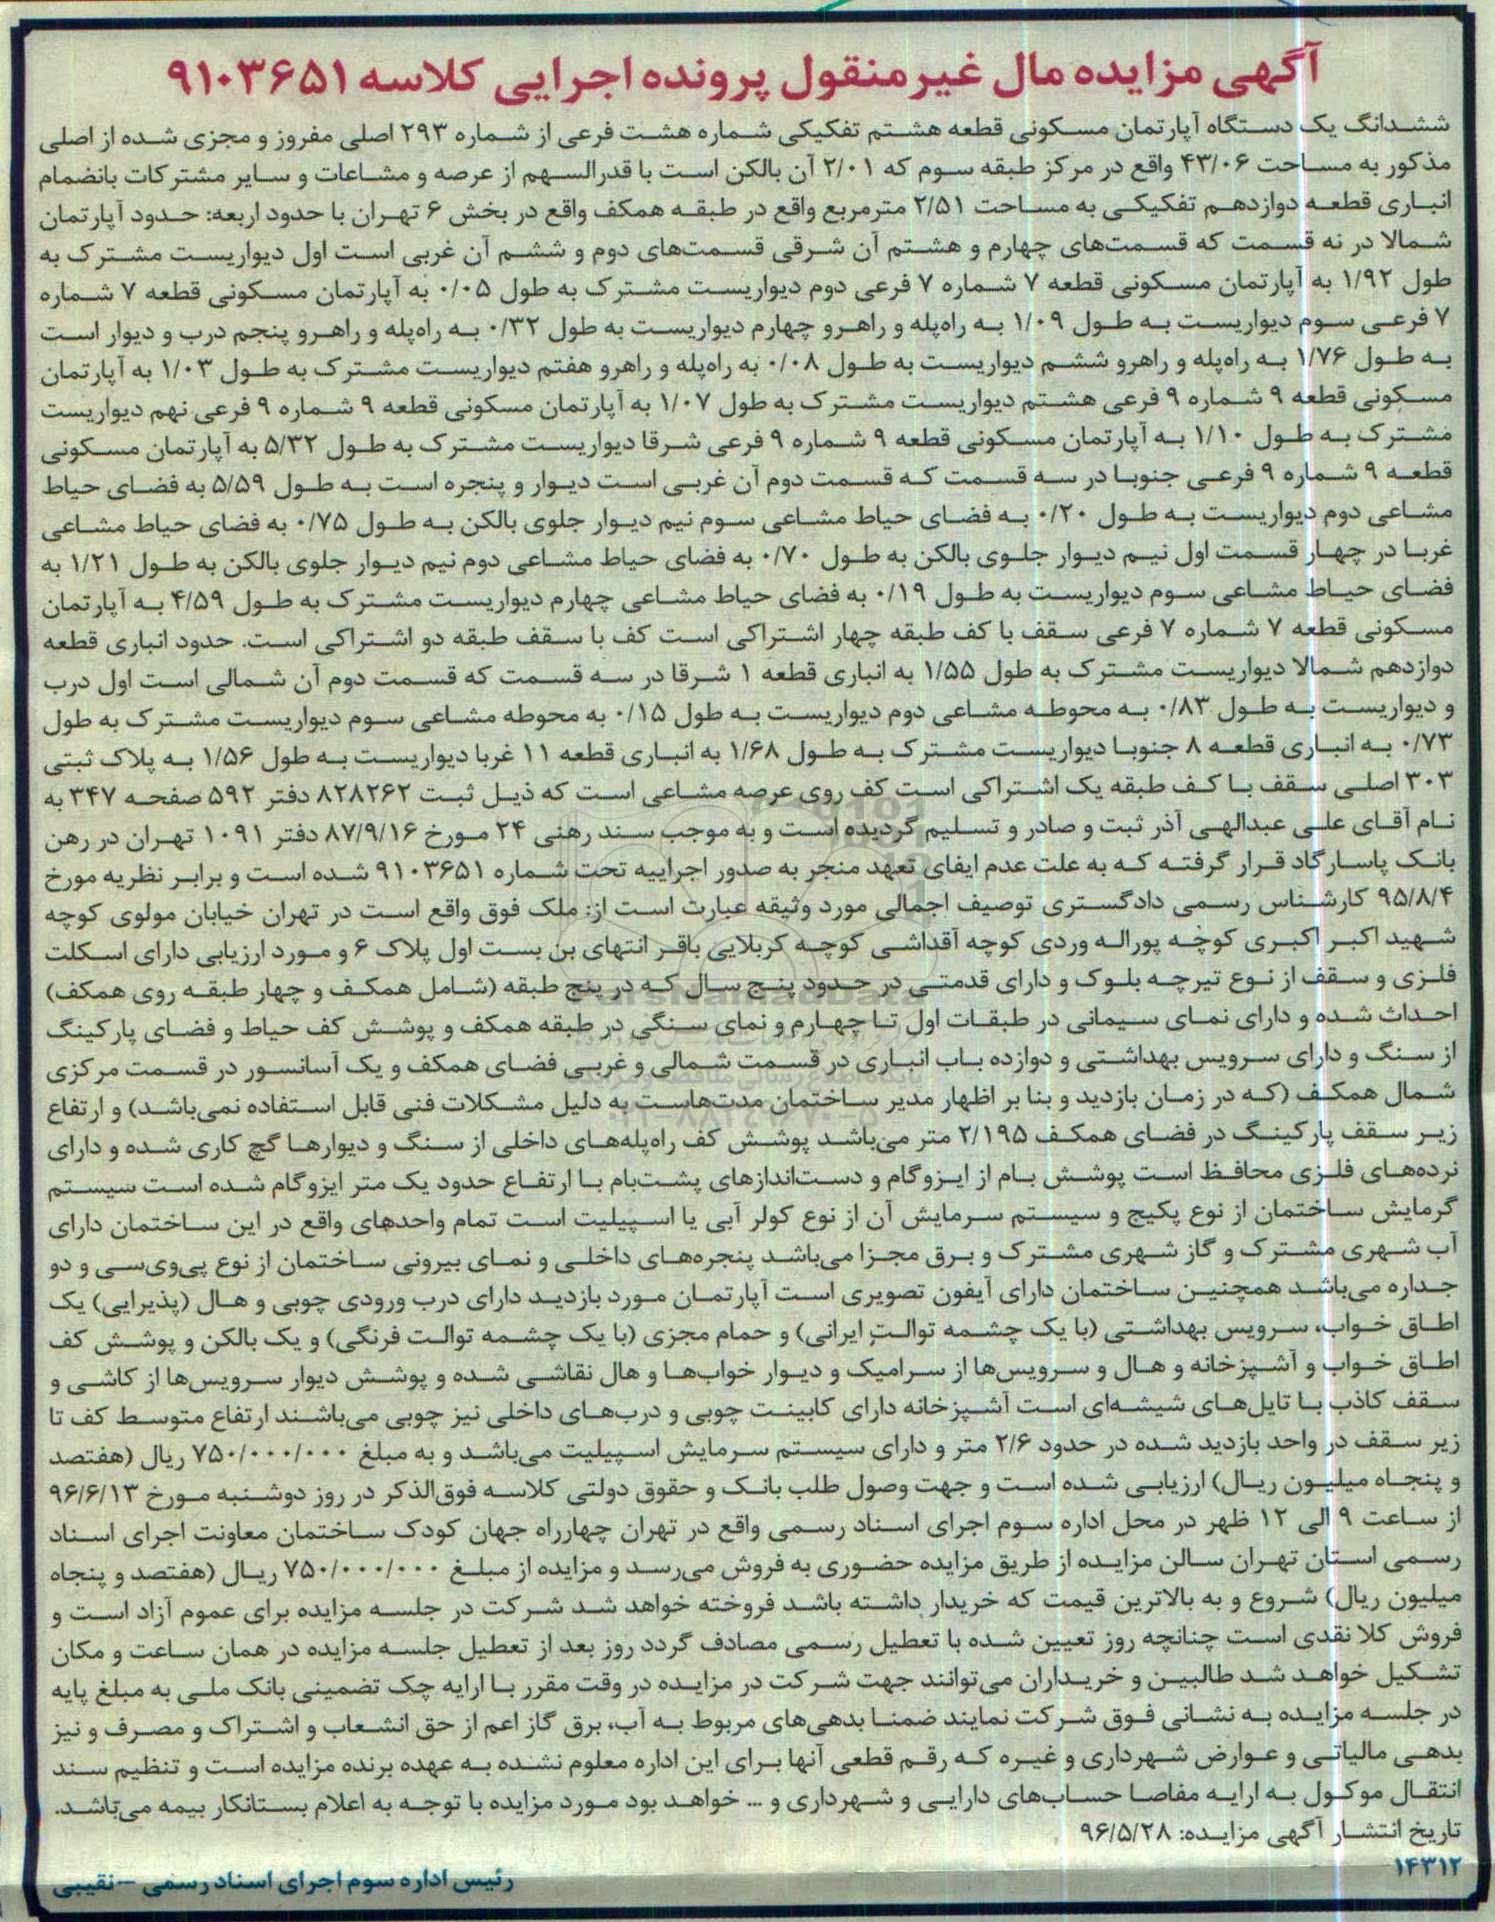 آگهی مزایده مال غیرمنقول پرونده اجرایی کلاسه ۹۱۰۳۶۵۱
ششدانگ یک دستگاه آپارتمان مسکونی قطعه هشتم تفکیکی شماره هشت فرعی از شماره ۲۹۳ اصلی مفروز و مجزی شده از اصلی
مذکور به مساحت ۴۳/۰۶ واقع در مرکز طبقه سوم که ۲/۰۱ آن بالکن است با قدرالسهم از عرصه و مشاعات و سایر مشترکات بانضمام
انباری قطعه دوازدهم تفکیکی به مساحت ۲/۵۱ مترمربع واقع در طبقه همکف واقع در بخش ۶ تهران با حدود اربعه: حدود آپارتمان
شمالا در نه قسمت که قسمت‌های چهارم و هشتم آن شرقی قسمت‌های دوم و ششم آن غربی است اول دیواریست مشترک به
طول ۱/۹۲ به آپارتمان مسکونی قطعه ۷ شماره ۷ فرعی دوم دیواریست مشترک به طول ۰/۰۵ به آپارتمان مسکونی قطعه ۷ شماره
۷ فرعی سوم دیواریست به طول ۱/۰۹ به راه‌پله و راهرو چهارم دیواریست به طول ۰/۳۲ به راه‌پله و راهرو پنجم درب و دیوار است
به طول ۱/۷۶ به راه‌پله و راهرو ششم دیواریست به طول ۰/۰۸ به راه‌پله و راهرو هفتم دیواریست مشترک به طول ۱/۰۳ به آپارتمان
مسکونی قطعه ۹ شماره ۹ فرعی هشتم دیواریست مشترک به طول ۱/۰۷ به آپارتمان مسکونی قطعه ۹ شماره ۹ فرعی نهم دیواریست
مشترک به طول ۱/۱۰ به آپارتمان مسکونی قطعه ۹ شماره ۹ فرعی شرقا دیواریست مشترک به طول ۵/۳۲ به آپارتمان مسکونی
قطعه ۹ شماره ۹ فرعی جنوبا در سه قسمت که قسمت دوم آن غربی است دیوار و پنجره است به طول ۵/۵۹ به فضای حیاط
مشاعی دوم دیواریست به طول ۰/۲۰ به فضای حیاط مشاعی سوم نیم دیوار جلوی بالکن به طول ۰/۷۵ به فضای حیاط مشاعی
غربا در چهار قسمت اول نیم دیوار جلوی بالکن به طول ۰/۷۰ به فضای حیاط مشاعی دوم نیم دیوار جلوی بالکن به طول ۱/۲۱ به
فضای حیاط مشاعی سوم دیواریست به طول ۰/۱۹ به فضای حیاط مشاعی چهارم دیواریست مشترک به طول ۴/۵۹ به آپارتمان
مسکونی قطعه ۷ شماره ۷ فرعی سقف با کف طبقه چهار اشتراکی است کف با سقف طبقه دو اشتراکی است. حدود انباری قطعه
دوازدهم شمالا دیواریست مشترک به طول ۱/۵۵ به انباری قطعه ۱ شرقا در سه قسمت که قسمت دوم آن شمالی است اول درب
و دیواریست به طول ۰/۸۳ به محوطه مشاعی دوم دیواریست به طول ۰/۱۵ به محوطه مشاعی سوم دیواریست مشترک به طول
۰/۷۳ به انباری قطعه ۸ جنوبا دیواریست مشترک به طول ۱/۶۸ به انباری قطعه ۱۱ غربا دیواریست به طول ۱/۵۶ به پلاک ثبتی
۳۰۳ اصلی سقف با کف طبقه یک اشتراکی است کف روی عرصه مشاعی است که ذیل ثبت ۸۲۸۲۶۲ دفتر ۵۹۲ صفحه ۳۴۷ به
نام آقای علی عبدالهی آذر ثبت و صادر و تسلیم گردیده است و به موجب سند رهنی ۲۴ مورخ ۸۷/۹/۱۶ دفتر ۱۰۹۱ تهران در رهن
بانک پاسارگاد قرار گرفته که به علت عدم ایفای تعهد منجر به صدور اجراییه تحت شماره ۹۱۰۳۶۵۱ شده است و برابر نظریه مورخ
۹۵/۸/۴ کارشناس رسمی دادگستری توصیف اجمالی مورد وثیقه عبارت است از: ملک فوق واقع است در تهران خیابان مولوی کوچه
شهید اکبر اکبری کوچه پوراله وردی کوچه آقداشی کوچه کربلایی باقر انتهای بن بست اول پلاک ۶ و مورد ارزیابی دارای اسکلت
فلزی و سقف از نوع تیرچه بلوک و دارای قدمتی در حدود پنج سال که در پنج طبقه (شامل همکف و چهار طبقه روی همکف)
احداث شده و دارای نمای سیمانی در طبقات اول تا چهارم و نمای سنگی در طبقه همکف و پوشش کف حیاط و فضای پارکینگ
از سنگ و دارای سرویس بهداشتی و دوازده باب انباری در قسمت شمالی و غربی فضای همکف و یک آسانسور در قسمت مرکزی
شمال همکف (که در زمان بازدید و بنا بر اظهار مدیر ساختمان مدت‌هاست به دلیل مشکلات فنی قابل استفاده نمی‌باشد) و ارتفاع
زیر سقف پارکینگ در فضای همکف ۲/۱۹۵ متر می‌باشد پوشش کف راه‌پله‌های داخلی از سنگ و دیوارها گچ کاری شده و دارای
نرده‌های فلزی محافظ است پوشش بام از ایزوگام و دست‌اندازهای پشت‌بام با ارتفاع حدود یک متر ایزوگام شده است سیستم
گرمایش ساختمان از نوع پکیج و سیستم سرمایش آن از نوع کولر آبی یا اسپیلیت است تمام واحدهای واقع در این ساختمان دارای
آب شهری مشترک و گاز شهری مشترک و برق مجزا می‌باشد پنجره‌های داخلی و نمای بیرونی ساختمان از نوع پی‌وی‌سی و دو
جداره می‌باشد همچنین ساختمان دارای آیفون تصویری است آپارتمان مورد بازدید دارای درب ورودی چوبی و هال (پذیرایی) یک
اطاق خواب، سرویس بهداشتی (با یک چشمه توالت ایرانی) و حمام مجزی (با یک چشمه توالت فرنگی) و یک بالکن و پوشش کف
اطاق خواب و آشپزخانه و هال و سرویس‌ها از سرامیک و دیوار خواب‌ها و هال نقاشی شده و پوشش دیوار سرویس‌ها از کاشی و
سقف کاذب با تایل‌های شیشه‌ای است آشپزخانه دارای کابینت چوبی و درب‌های داخلی نیز چوبی می‌باشند ارتفاع متوسط کف تا
زیر سقف در واحد بازدید شده در حدود ۲/۶ متر و دارای سیستم سرمایش اسپیلیت می‌باشد و به مبلغ ۷۵۰/۰۰۰/۰۰۰ ریال (هفتصد
و پنجاه میلیون ریال) ارزیابی شده است و جهت وصول طلب بانک و حقوق دولتی کلاسه فوق‌الذکر در روز دوشنبه مورخ ۹۶/۶/۱۳
از ساعت ۹ الی ۱۲ ظهر در محل اداره سوم اجرای اسناد رسمی واقع در تهران چهارراه جهان کودک ساختمان معاونت اجرای اسناد
رسمی استان تهران سالن مزایده از طریق مزایده حضوری به فروش می‌رسد و مزایده از مبلغ ۷۵۰/۰۰۰/۰۰۰ ریال (هفتصد و پنجاه
میلیون ریال) شروع و به بالاترین قیمت که خریدار داشته باشد فروخته خواهد شد شرکت در جلسه مزایده برای عموم آزاد است و
فروش کلا نقدی است چنانچه روز تعیین شده با تعطیل رسمی مصادف گردد روز بعد از تعطیل جلسه مزایده در همان ساعت و مکان
تشکیل خواهد شد طالبین و خریداران می‌توانند جهت شرکت در مزایده در وقت مقرر با ارایه چک تضمینی بانک ملی به مبلغ پایه
در جلسه مزایده به نشانی فوق شرکت نمایند ضمنا بدهی‌های مربوط به آب، برق گاز اعم از حق انشعاب و اشتراک و مصرف و نیز
بدهی مالیاتی و عوارض شهرداری و غیره که رقم قطعی آنها برای این اداره معلوم نشده به عهده برنده مزایده است و تنظیم سند
انتقال موکول به ارایه مفاصا حساب‌های دارایی و شهرداری و ... خواهد بود مورد مزایده با توجه به اعلام بستانکار بیمه می‌باشد.
تاریخ انتشار آگهی مزایده: ۹۶/۵/۲۸
۱۴۳۱۲
رئیس اداره سوم اجرای اسناد رسمی – نقیبی